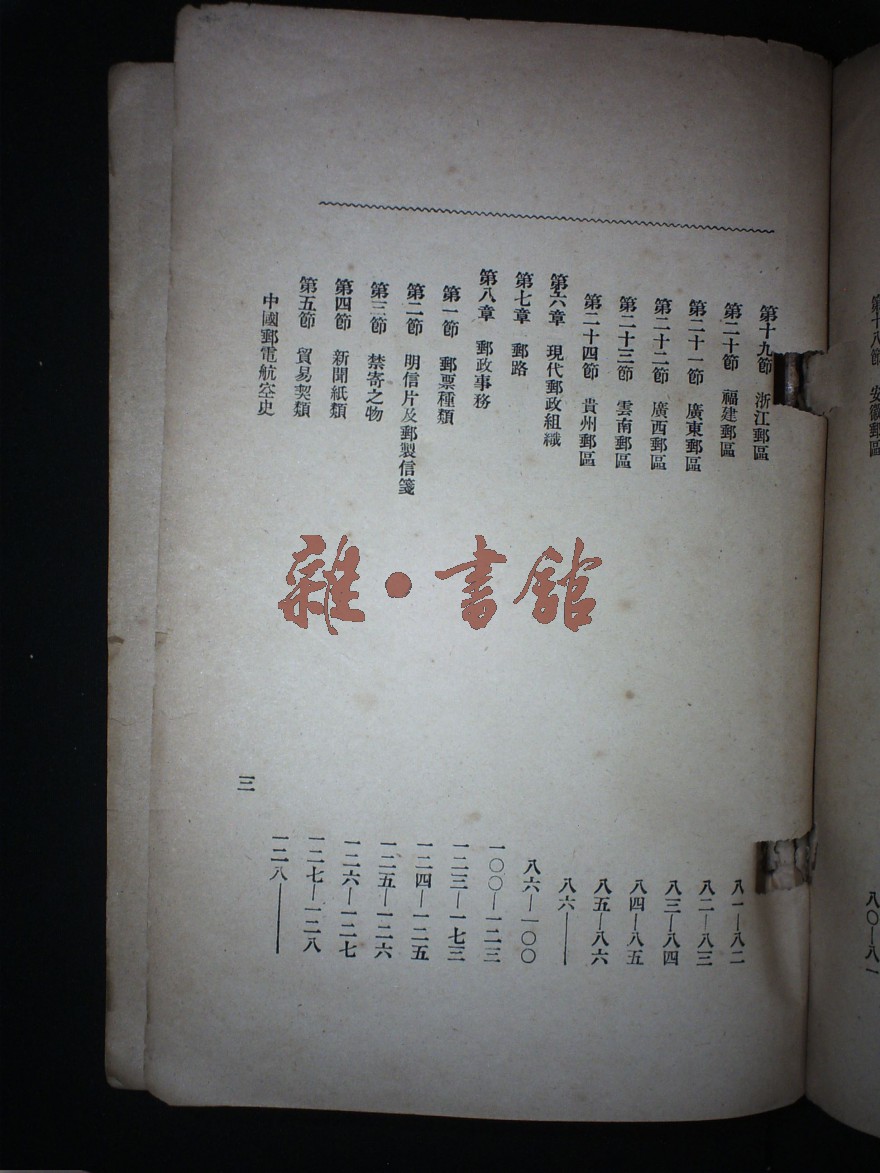 第十八節 安徽郵區 八〇—八一
第十九節 浙江郵區 八一—八二
第二十節 福建郵區 八二—八三
第二十一節 廣東郵區 八三—八四
第二十二節 廣西郵區 八四—八五
第二十三節 雲南郵區 八五—八六
第二十四節 貴州郵區 八六——
第六章 現代郵政組織 八六—一〇〇
第七章 郵路 一〇〇—一二三
第八章 郵政事務 一二三—一七三
第一節 郵票種類 一二四—一二五
第二節 明信片及郵製信箋 一二五—一二六
第三節 禁寄之物 一二六—一二七
第四節 新聞紙類 一二七—一二八
第五節 貿易契類 一二八——
中國郵電航空史 三
雜·書館